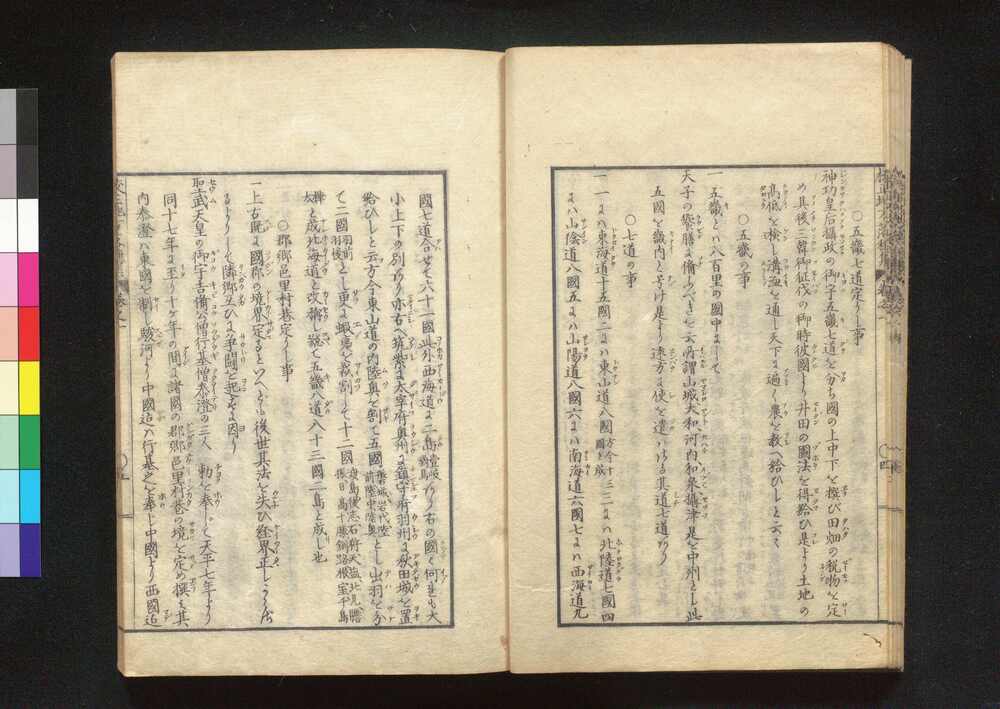 ○五畿七道定りし事
神功皇后摂政の御宇五畿七道を分ち國の上中下を撰び田畑の税物を定
め其後三韓御征伐の御時彼國より井田の圖法を得給ひ是より土地の
高低を検し溝洫を通し天下に遍く農を教へ給ひしと云々
○五畿の事
一五畿とハ八百里の國中にして
天子の養膳に備ふべきを云所謂山城大和河内和泉攝津是を中州とし此
五國を畿内と号け是より遠方に使を遣ハさる其道七道あり
○七道の事
一一にハ東海道十五國二にハ東山道八國方今十三國と成三にハ北陸道七國四
にハ山陰道八國五にハ山陽道八國六にハ南海道六國七にハ西海道九
國七道合せて六十一國此外西海道に二島壹岐對馬あり右の國々何れも大
小上下の別あり亦右へ筑紫に太宰府奥州に鎮守府羽州に秋田城を置
給ひしと云方今東山道の内陸奥を割て五國磐城岩代陸前陸中陸奥とし出羽を分
て二國羽前羽後とし更に蝦夷を裁割して十二國渡島後志石狩天塩北見膽振日高十勝釧路根室千島
樺太と成北海道と改稱し総て五畿八道八十三國二島と成し也
○郡郷邑里村巷定りし事
一上古既に國郡の境界定るといへども後世其法を失ひ経界正しからざ
るよりして隣郷互ひに争闘を起すに因り
聖武天皇の御宇吉備公僧行基僧泰澄の三人 勅を奉じて天平七年より
同十七年に至り十ケ年の間に諸國の郡郷邑里村巷の境を定め撰ミ其
内泰澄ハ東國を制し駿河より中國迄ハ行基之を奉し中國より西國迄